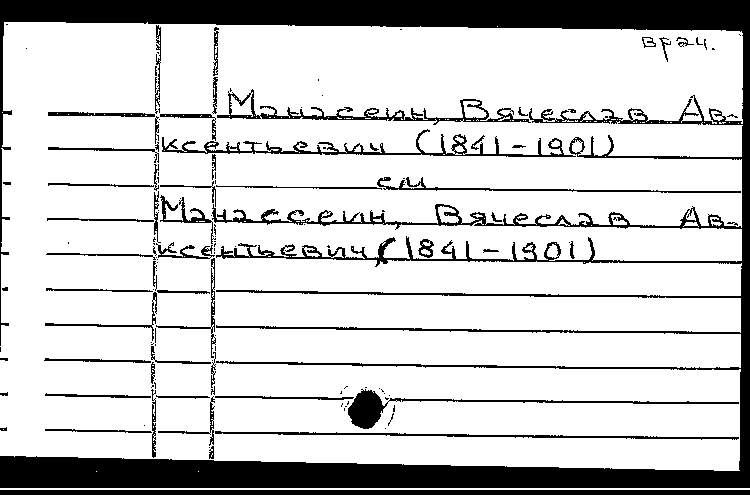 врач.
Манасеин, Вячеслав Ав-
ксентьевич (1841-1901)
см.
Манассеин, Вячеслав Ав-
ксентьевич (1841-1901)